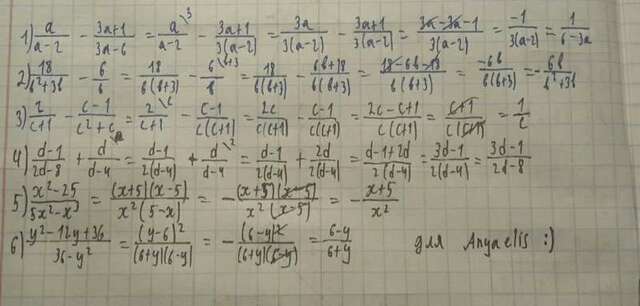 1) a/(a-2) - (3a+1)/(3a-6) = a\3/(a-2) - (3a+1)/(3(a-2)) = 3a/(3(a-2)) - (3a+1)/(3(a-2)) = (3a-3a-1)/(3(a-2)) = -1/(3(a-2)) = 1/(6-3a)
2) 18/(b²+3b) - 6/b = 18/(b(b+3)) - 6\b+3/b = 18/(b(b+3)) - (6b+18)/(b(b+3)) = (18-6b-18)/(b(b+3)) = -6b/(b(b+3)) = -6b/(b²+3b)
3) 2/(c+1) - (c-1)/(c²+c) = 2\c/(c+1) - (c-1)/(c(c+1)) = 2c/(c(c+1)) - (c-1)/(c(c+1)) = (2c-c+1)/(c(c+1)) = (c+1)/(c(c+1)) = 1/c
4) (d-1)/(2d-8) + d/(d-4) = (d-1)/(2(d-4)) + d\2/(d-4) = (d-1)/(2(d-4)) + 2d/(2(d-4)) = (d-1+2d)/(2(d-4)) = (3d-1)/(2(d-4)) = (3d-1)/(2d-8)
5) (x²-25)/(5x²-x³) = ((x+5)(x-5))/(x²(5-x)) = -((x+5)(x-5))/(x²(x-5)) = -(x+5)/x²
6) (y²-12y+36)/(36-y²) = (y-6)²/((6+y)(6-y)) = -(6-y)²/((6+y)(6-y)) = (6-y)/(6+y) для Anyaelis :)